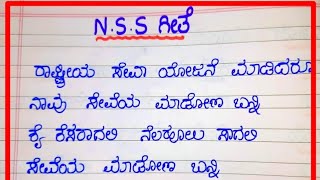 N.S.S ಗೀತೆ
ರಾಷ್ಟ್ರೀಯ ಸೇವಾ ಯೋಜನೆ ಮಾಡಿದರೂ
ನಾವು ಸೇವೆಯ ಮಾಡೋಣ ಬನ್ನಿ
ಕೈ ಕೆಸರಾಗಲಿ ನೆಲಹೂಲು ಸಾಗಲಿ
ಸೇವೆಯ ಮಾಡೋಣ ಬನ್ನಿ